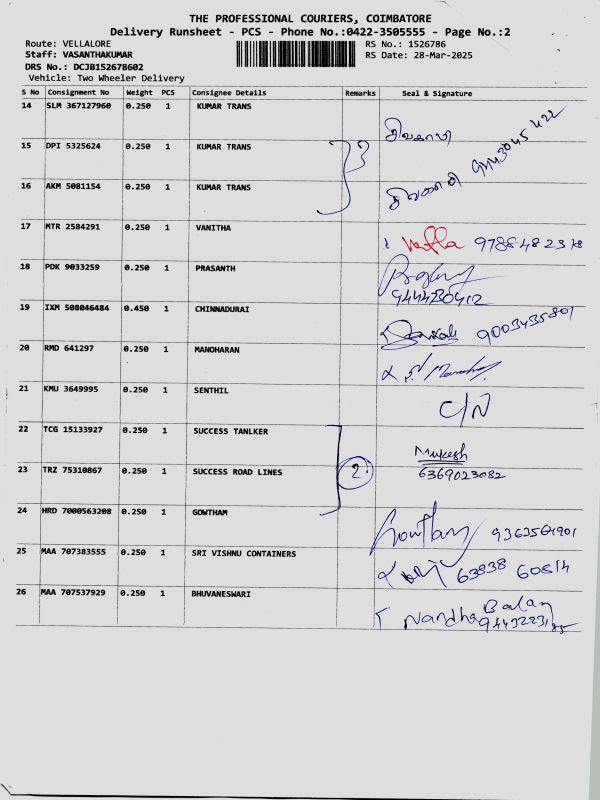 THE PROFESSIONAL COURIERS, COIMBATORE
Delivery Runsheet - PCS - Phone No.:0422-3505555 - Page No.:2
Route: VELLALORE RS No.: 1526786
Staff: VASANTHAKUMAR RS Date: 28-Mar-2025
DRS No.: DCJB152678602
Vehicle: Two Wheeler Delivery
S No Consignment No Weight PCS Consignee Details Remarks Seal & Signature
14 SLM 367127960 0.250 1 KUMAR TRANS
சிவகாமி
15 DPI 5325624 0.250 1 KUMAR TRANS
16 AKM 5081154 0.250 1 KUMAR TRANS
17 MTR 2584291 0.250 1 VANITHA
9788482318
18 PDK 9033259 0.250 1 PRASANTH
9444230412
19 IXM 508046484 0.450 1 CHINNADURAI
9003435801
20 RMD 641297 0.250 1 MANOHARAN
21 KMU 3649995 0.250 1 SENTHIL
C/N
22 TCG 15133927 0.250 1 SUCCESS TANLKER
Mukesh
23 TRZ 75310867 0.250 1 SUCCESS ROAD LINES 2
6369023082
24 HRD 7000563208 0.250 1 GOWTHAM
Gowtham
25 MAA 707383555 0.250 1 SRI VISHNU CONTAINERS
63838 60814
26 MAA 707537929 0.250 1 BHUVANESWARI
Nandha Balan